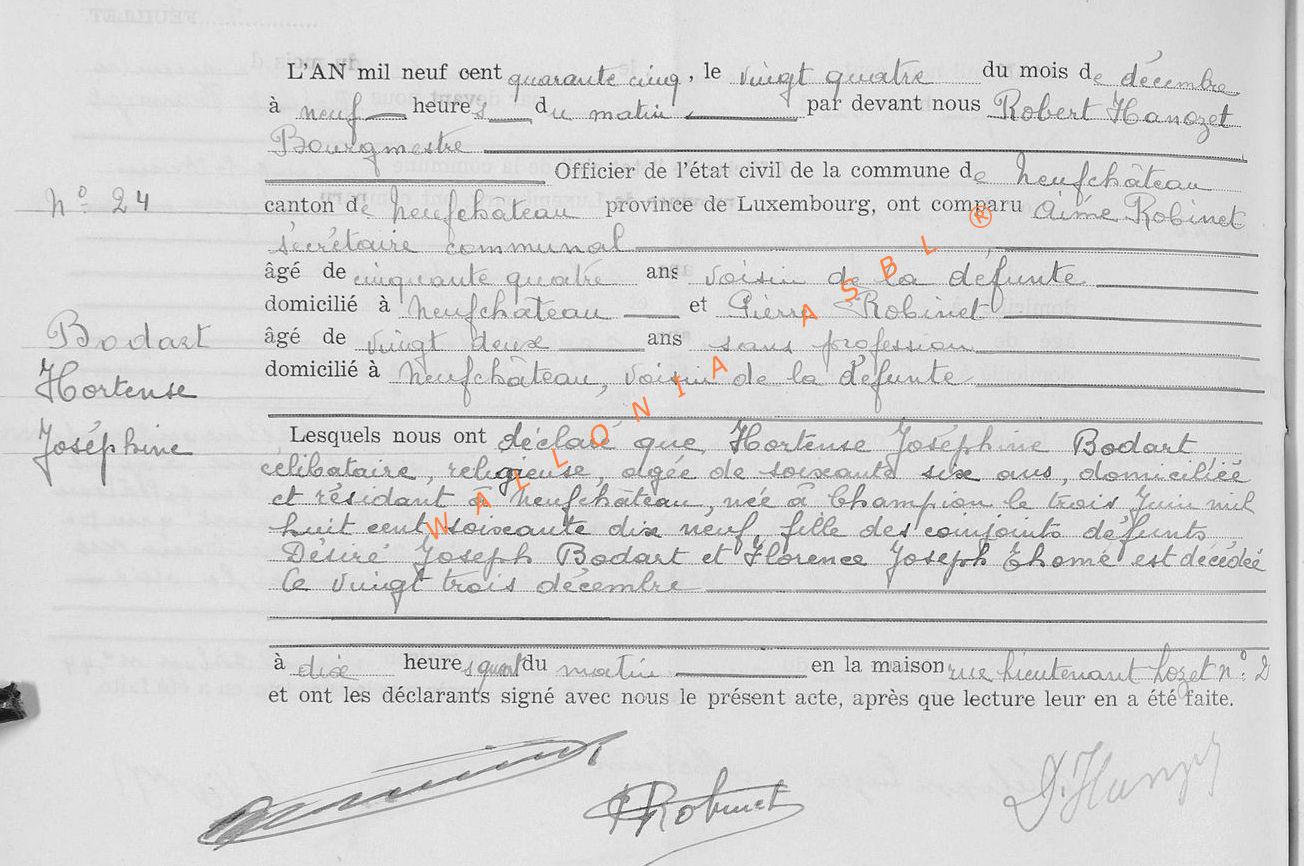 L'AN mil neuf cent quarante cinq, le vingt quatre du mois de décembre
à neuf heures du matin par devant nous Robert Hanozet
Bourgmestre
Officier de l'état civil de la commune de Neufchâteau
N° 24
canton de Neufchâteau province de Luxembourg, ont comparu Aimé Robinet
secrétaire communal
âgé de cinquante quatre ans voisin de la défunte
domicilié à Neufchâteau et Pierre Robinet
Bodart
âgé de vingt deux ans sans profession
domicilié à Neufchâteau, voisin de la défunte
Hortense
Joséphine
Lesquels nous ont déclaré que Hortense Joséphine Bodart
célibataire, religieuse, agée de soixante six ans, domiciliée
et résidant à Neufchâteau, née à Champion le trois Juin mil
huit cent soixante dix neuf, fille des conjoints défunts
Désiré Joseph Bodart et Florence Joseph Thomé est décédée
le vingt trois décembre
à dix heures quart du matin en la maison rue Lieutenant Lozet n° 2
et ont les déclarants signé avec nous le présent acte, après que lecture leur en a été faite.
Robinet
WALLONIA ASBL ®